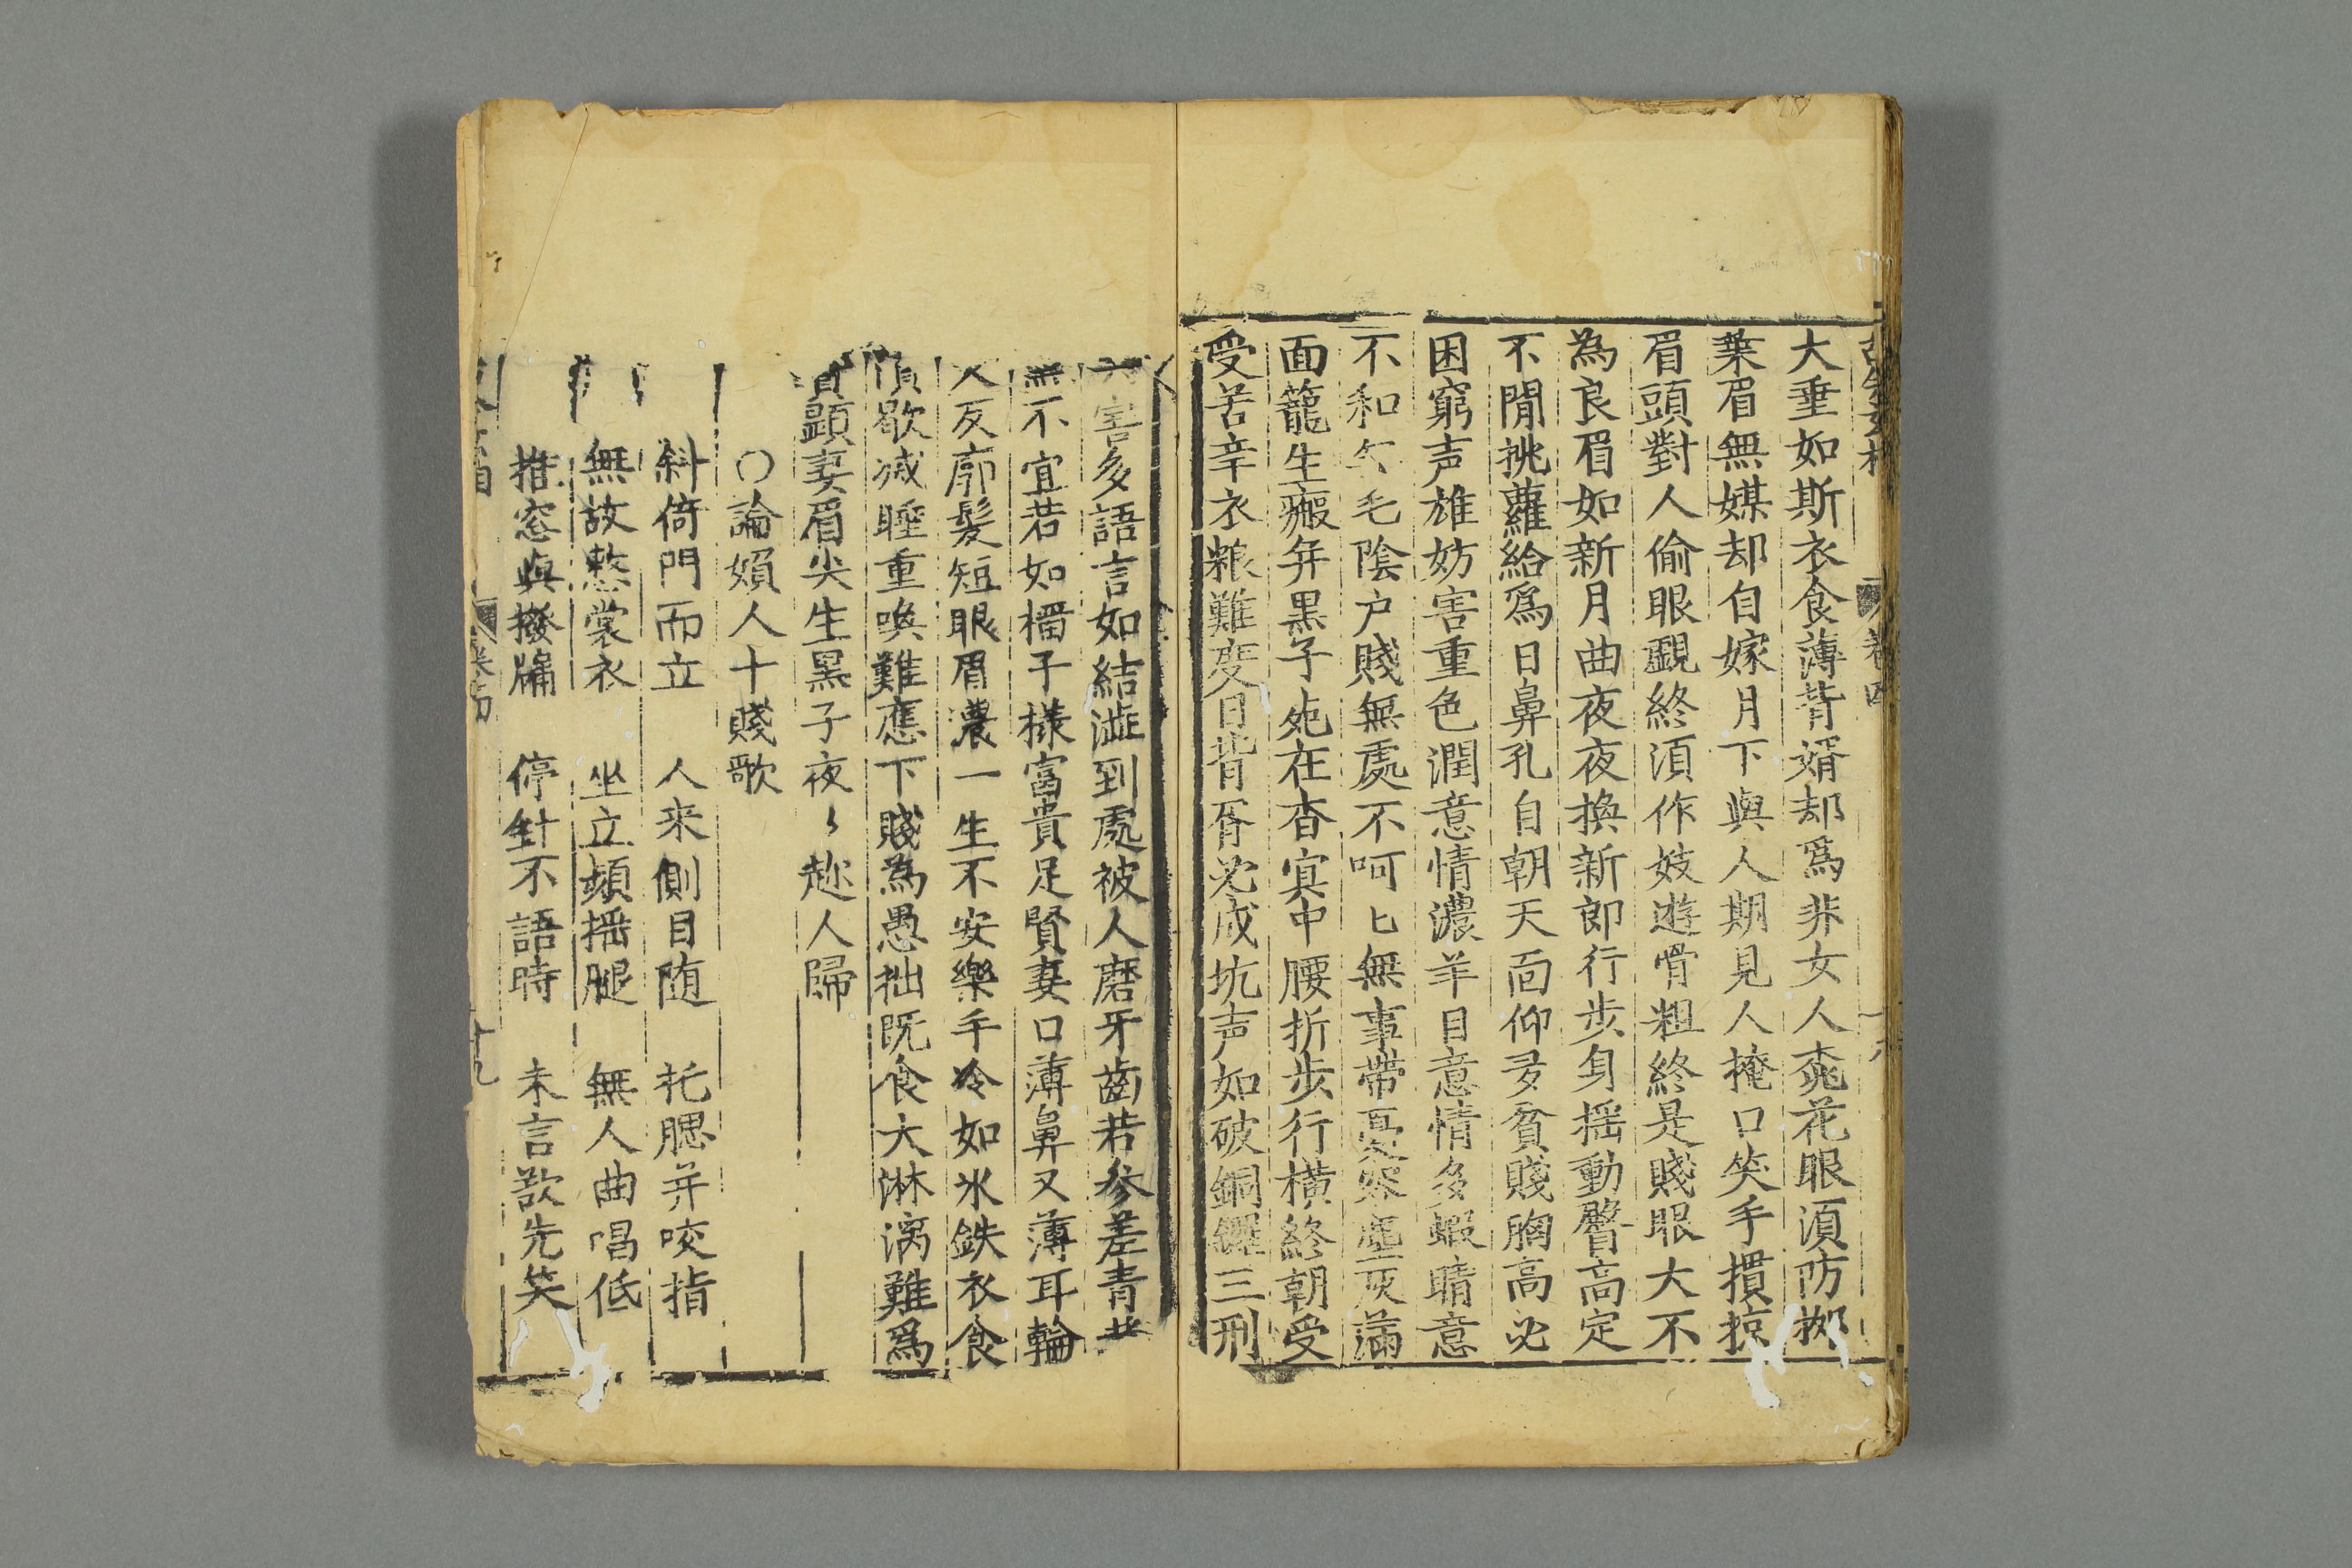 大垂如斯衣食薄背婿却爲非女人桃花眼湏防柳
葉眉無媒却自嫁月下與人期見人掩口笑手摜掠
眉頭對人偷眼覷終湏作妓遊骨粗終是賤眼大不
為良眉如新月曲夜夜換新郎行步身揺動臀高定
不閒挑蘿給爲日鼻孔自朝天面仰多貧賤胸高必
困窮声雄妨害重色潤意情濃羊目意情多蝦睛意
不和 毛陰户賤無處不呵匕無事帶憂容塵灰滿
面籠生瘢并黒子 在杳冥中腰折步行橫終朝受
受苦辛衣粮難度日背 成坑声如破銅鑼三刑
害多語言如結澁到處被人磨牙齒若參差青
無不宜若如榴子樣富貴足賢妻口薄鼻又薄耳輪
反廓髮短眼眉濃一生不安樂手冷如氷鉄衣食
歇减睡重喚難應下賤為愚拙既食大淋漓難爲
顕妻眉尖生黑子夜〻趂人歸
〇論嬪人十賤歌
斜倚門而立 人来側目随 托腮并咬指
無故整裳衣 坐立頻揺腿 無人曲唱低
推窓與撥牖 停針不語時 未言欲先笑
卷四
十九